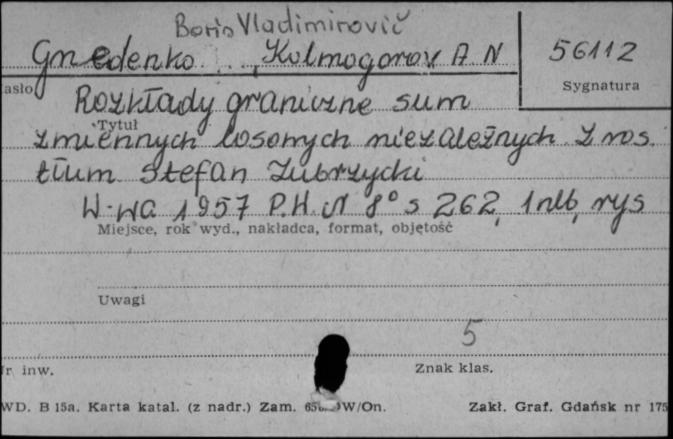 Boris Vladimirovič
Gnedenko ..., Kolmogorov A. N 56112
asło Sygnatura
Rozkłady graniczne sum
Tytuł
zmiennych losowych niezależnych. Z ros.
tłum Stefan Zubrzycki
W-wa 1957 P.W.N 8° s 262, 1 nlb, rys
Miejsce, rok wyd., nakładca, format, objętość
Uwagi
5
r inw. Znak klas.
WD. B 15a. Karta katal. (z nadr.) Zam. W/On. Zakł. Graf. Gdańsk nr 175